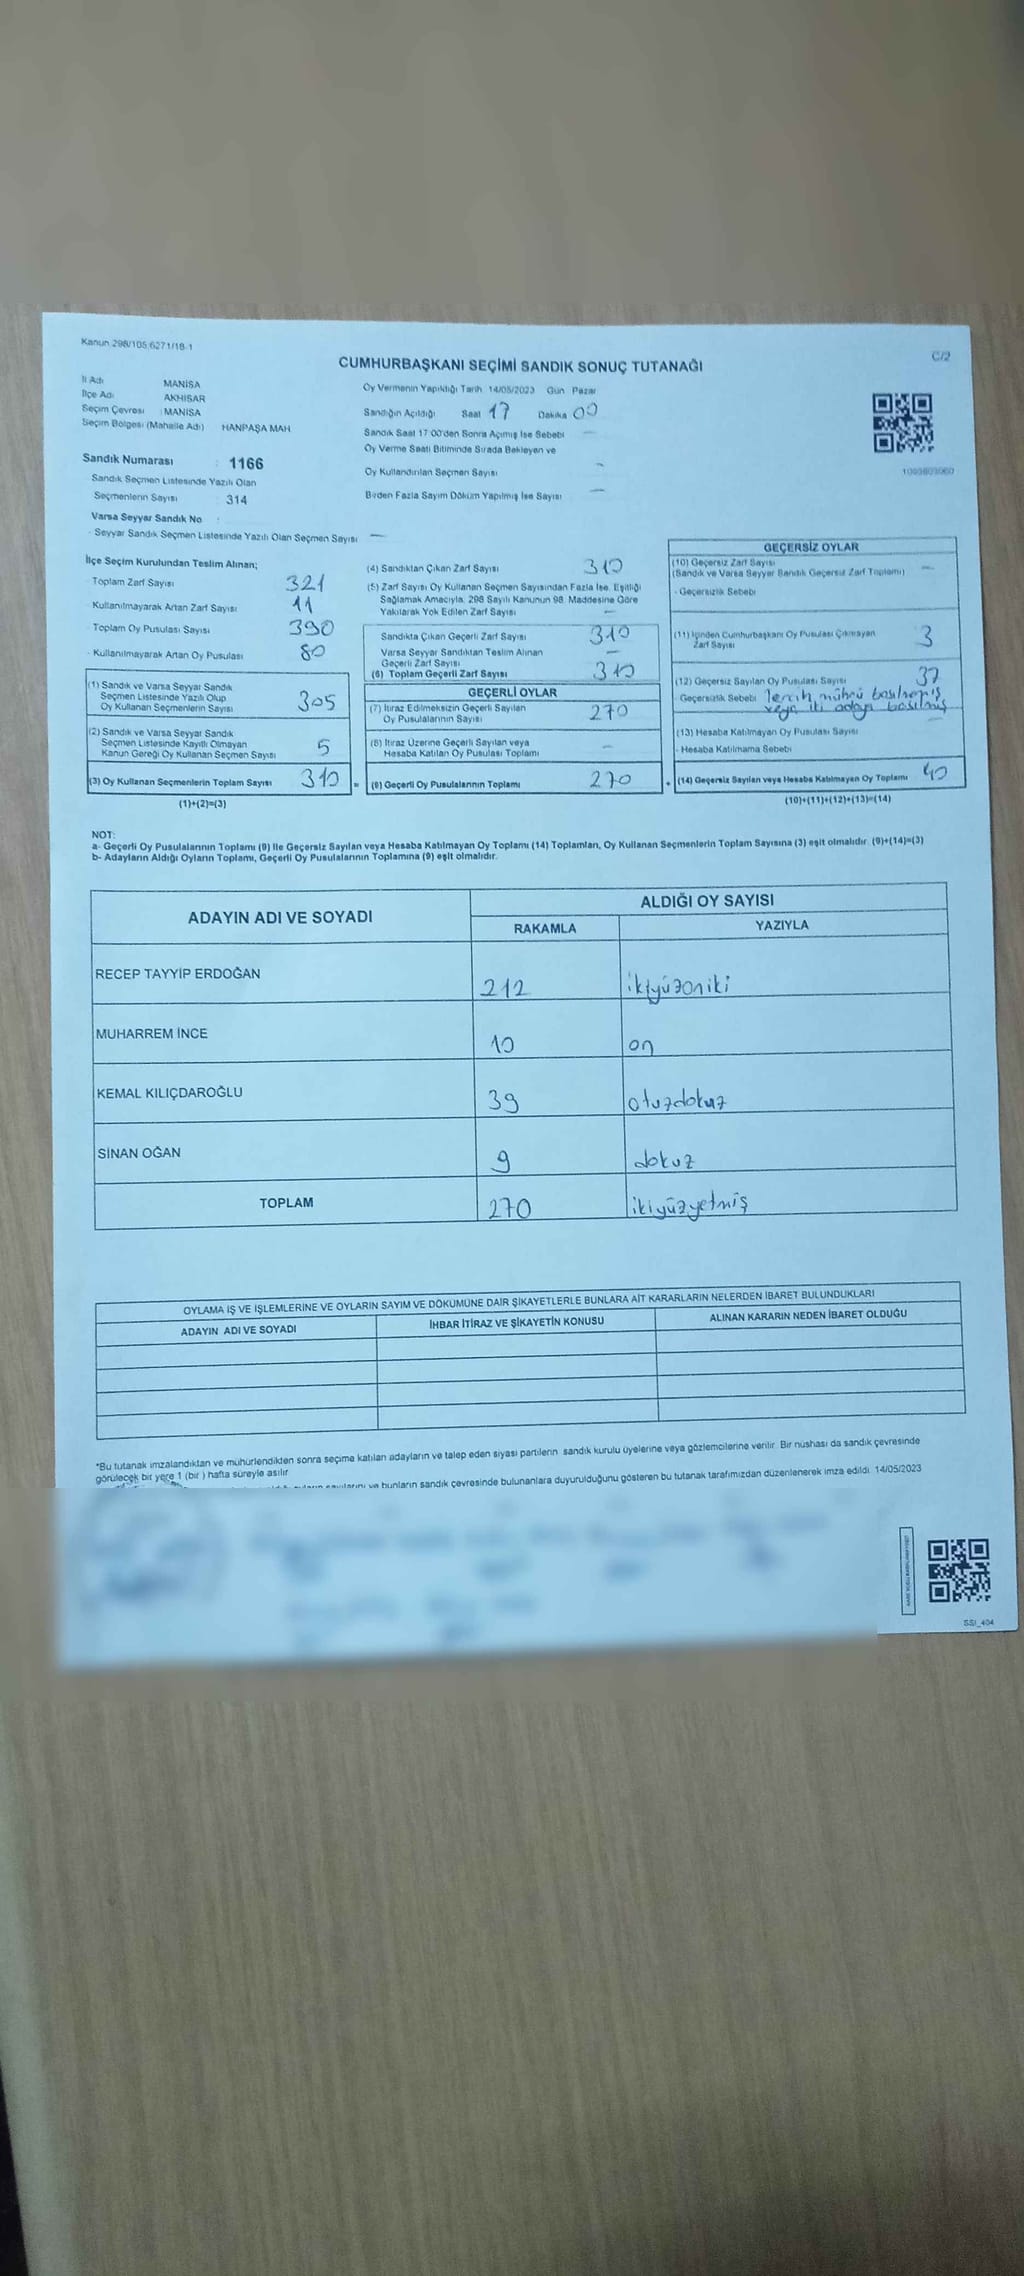 Kanun 298/105 6271/18-1
C/2
CUMHURBAŞKANI SEÇİMİ SANDIK SONUÇ TUTANAĞI
İl Adı MANİSA
İlçe Adı AKHİSAR
Seçim Çevresi : MANİSA
Seçim Bölgesi (Mahalle Adı) HANPAŞA MAH
Sandık Numarası : 1166
Sandık Seçmen Listesinde Yazılı Olan
Seçmenlerin Sayısı : 314
Varsa Seyyar Sandık No :
- Seyyar Sandık Seçmen Listesinde Yazılı Olan Seçmen Sayısı —
Oy Vermenin Yapıldığı Tarih 14/05/2023 Gün Pazar
Sandığın Açıldığı Saat 17 Dakika 00
Sandık Saat 17:00'den Sonra Açımış İse Sebebi —
Oy Verme Saati Bitiminde Sırada Bekleyen ve
Oy Kullandırılan Seçmen Sayısı —
Birden Fazla Sayım Döküm Yapılmış İse Sayısı —
İlçe Seçim Kurulundan Teslim Alınan;
- Toplam Zarf Sayısı 321
- Kullanılmayarak Artan Zarf Sayısı 11
- Toplam Oy Pusulası Sayısı 390
- Kullanılmayarak Artan Oy Pusulası 80
(1) Sandık ve Varsa Seyyar Sandık
Seçmen Listesinde Yazılı Olup
Oy Kullanan Seçmenlerin Sayısı 305
(2) Sandık ve Varsa Seyyar Sandık
Seçmen Listesinde Kayıtlı Olmayan
Kanun Gereği Oy Kullanan Seçmen Sayısı 5
(3) Oy Kullanan Seçmenlerin Toplam Sayısı 310 =
(1)+(2)=(3)
(4) Sandıktan Çıkan Zarf Sayısı 310
(5) Zarf Sayısı Oy Kullanan Seçmen Sayısından Fazla İse, Eşitliği
Sağlamak Amacıyla, 298 Sayılı Kanunun 98. Maddesine Göre
Yakılarak Yok Edilen Zarf Sayısı —
Sandıkta Çıkan Geçerli Zarf Sayısı 310
Varsa Seyyar Sandıktan Teslim Alınan
Geçerli Zarf Sayısı —
(6) Toplam Geçerli Zarf Sayısı 310
GEÇERLİ OYLAR
(7) İtiraz Edilmeksizin Geçerli Sayılan
Oy Pusulalarının Sayısı 270
(8) İtiraz Üzerine Geçerli Sayılan veya
Hesaba Katılan Oy Pusulası Toplamı —
(9) Geçerli Oy Pusulalarının Toplamı 270 +
GEÇERSİZ OYLAR
(10) Geçersiz Zarf Sayısı
(Sandık ve Varsa Seyyar Sandık Geçersiz Zarf Toplamı) —
- Geçersizlik Sebebi
(11) İçinden Cumhurbaşkanı Oy Pusulası Çıkmayan
Zarf Sayısı 3
(12) Geçersiz Sayılan Oy Pusulası Sayısı 37
Geçersizlik Sebebi Tercih mührü basılmamış
veya iki adaya basılmış
(13) Hesaba Katılmayan Oy Pusulası Sayısı —
- Hesaba Katılmama Sebebi
(14) Geçersiz Sayılan veya Hesaba Katılmayan Oy Toplamı 40
(10)+(11)+(12)+(13)=(14)
NOT:
a- Geçerli Oy Pusulalarının Toplamı (9) İle Geçersiz Sayılan veya Hesaba Katılmayan Oy Toplamı (14) Toplamları, Oy Kullanan Seçmenlerin Toplam Sayısına (3) eşit olmalıdır. (9)+(14)=(3)
b- Adayların Aldığı Oyların Toplamı, Geçerli Oy Pusulalarının Toplamına (9) eşit olmalıdır.
ADAYIN ADI VE SOYADI
ALDIĞI OY SAYISI
RAKAMLA YAZIYLA
RECEP TAYYİP ERDOĞAN 212 ikiyüzoniki
MUHARREM İNCE 10 on
KEMAL KILIÇDAROĞLU 39 otuzdokuz
SİNAN OĞAN 9 dokuz
TOPLAM 270 ikiyüzyetmiş
OYLAMA İŞ VE İŞLEMLERİNE VE OYLARIN SAYIM VE DÖKÜMÜNE DAİR ŞİKAYETLERLE BUNLARA AİT KARARLARIN NELERDEN İBARET BULUNDUKLARI
ADAYIN ADI VE SOYADI İHBAR İTİRAZ VE ŞİKAYETİN KONUSU ALINAN KARARIN NEDEN İBARET OLDUĞU
*Bu tutanak imzalandıktan ve mühürlendikten sonra seçime katılan adayların ve talep eden siyasi partilerin sandık kurulu üyelerine veya gözlemcilerine verilir. Bir nüshası da sandık çevresinde
görülecek bir yere 1 (bir ) hafta süreyle asılır.
ve bunların sandık çevresinde bulunanlara duyurulduğunu gösteren bu tutanak tarafımızdan düzenlenerek imza edildi. 14/05/2023
SSI_404